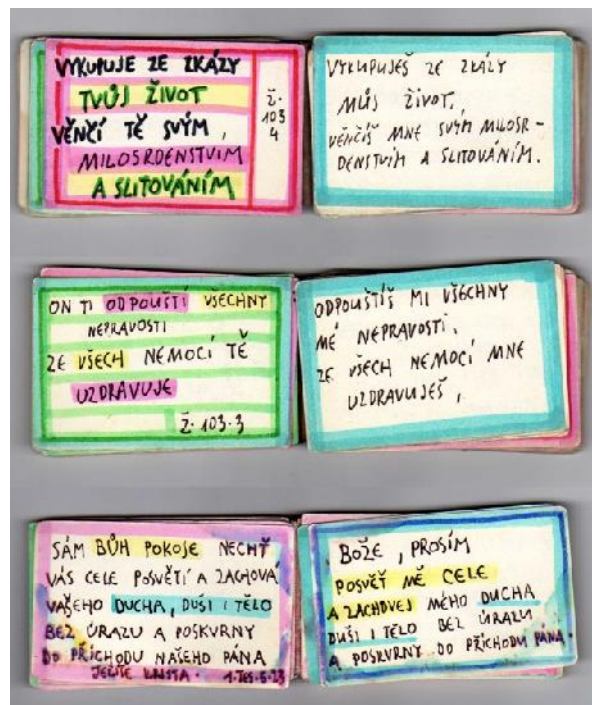 VYKUPUJE ZE ZKÁZY
TVŮJ ŽIVOT
VĚNČÍ TĚ SVÝM,
MILOSRDENSTVIM
A SLITOVÁNÍM
Ž.
103
4
VYKUPUJEŠ ZE ZKÁZY
MŮJ ŽIVOT,
VĚNČÍŠ MNE SVÝM MILOSR-
DENSTVÍM A SLITOVÁNÍM.
ON TI ODPOUŠTÍ VŠECHNY
NEPRAVOSTI
ZE VŠECH NEMOCÍ TĚ
UZDRAVUJE
Ž. 103.3
ODPOUŠTÍŠ MI VŠECHNY
MÉ NEPRAVOSTI,
ZE VŠECH NEMOCÍ MNE
UZDRAVUJEŠ,
SÁM BŮH POKOJE NECHŤ
VÁS CELE POSVĚTÍ A ZACHOVÁ
VAŠEHO DUCHA, DUŠI I TĚLO
BEZ ÚRAZU A POSKVRNY
DO PŘÍCHODU NAŠEHO PÁNA
JEŽÍŠE KRISTA. 1.TES.5.23
BOŽE, PROSÍM
POSVĚŤ MĚ CELE
A ZACHOVEJ MÉHO DUCHA
DUŠI I TĚLO BEZ ÚRAZU
A POSKVRNY DO PŘÍCHODU PÁNA.